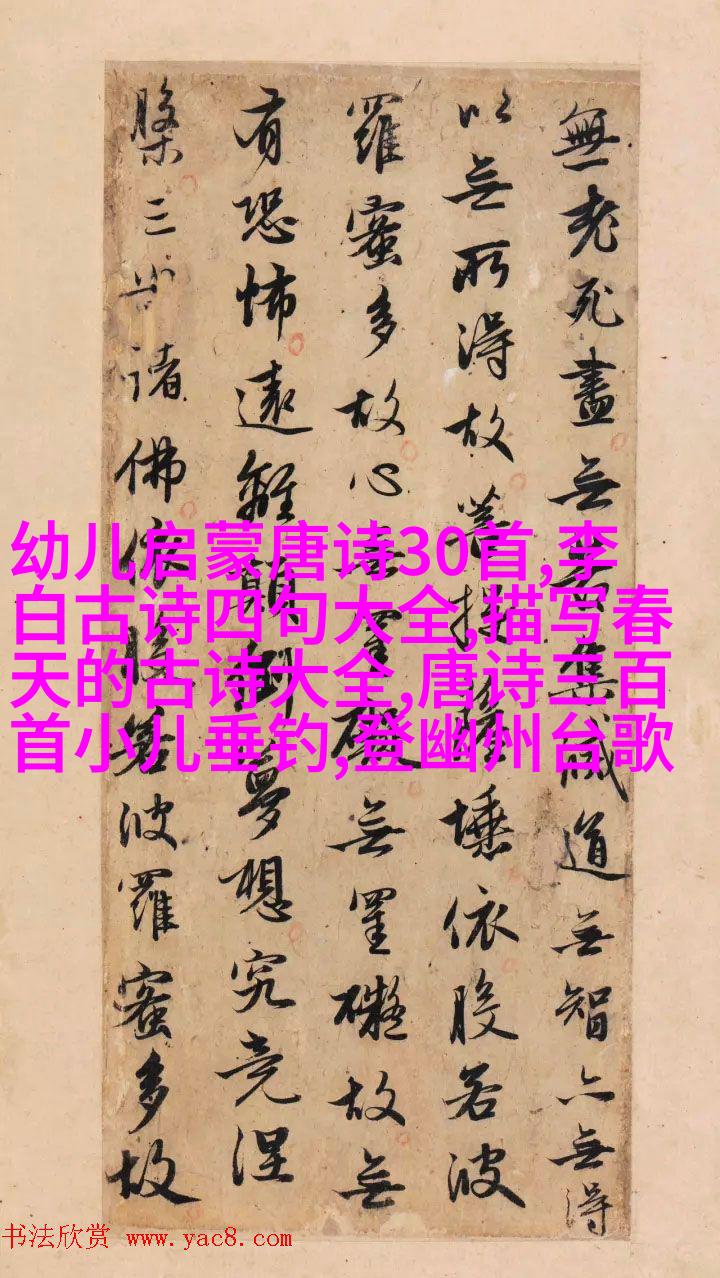 無老死盡無苦集滅道無智亦無得
以無所得故菩提薩埵依般若波
羅蜜多故心無罣礙無罣礙故無
有恐怖遠離顛倒夢想究竟涅
槃三世諸佛依般若波羅蜜多故
幼儿启蒙唐诗30首,李
白古诗四句大全,描写春
天的古诗大全,唐诗三百
首小儿垂钓,登幽州台歌
书法欣赏 www.yac8.com